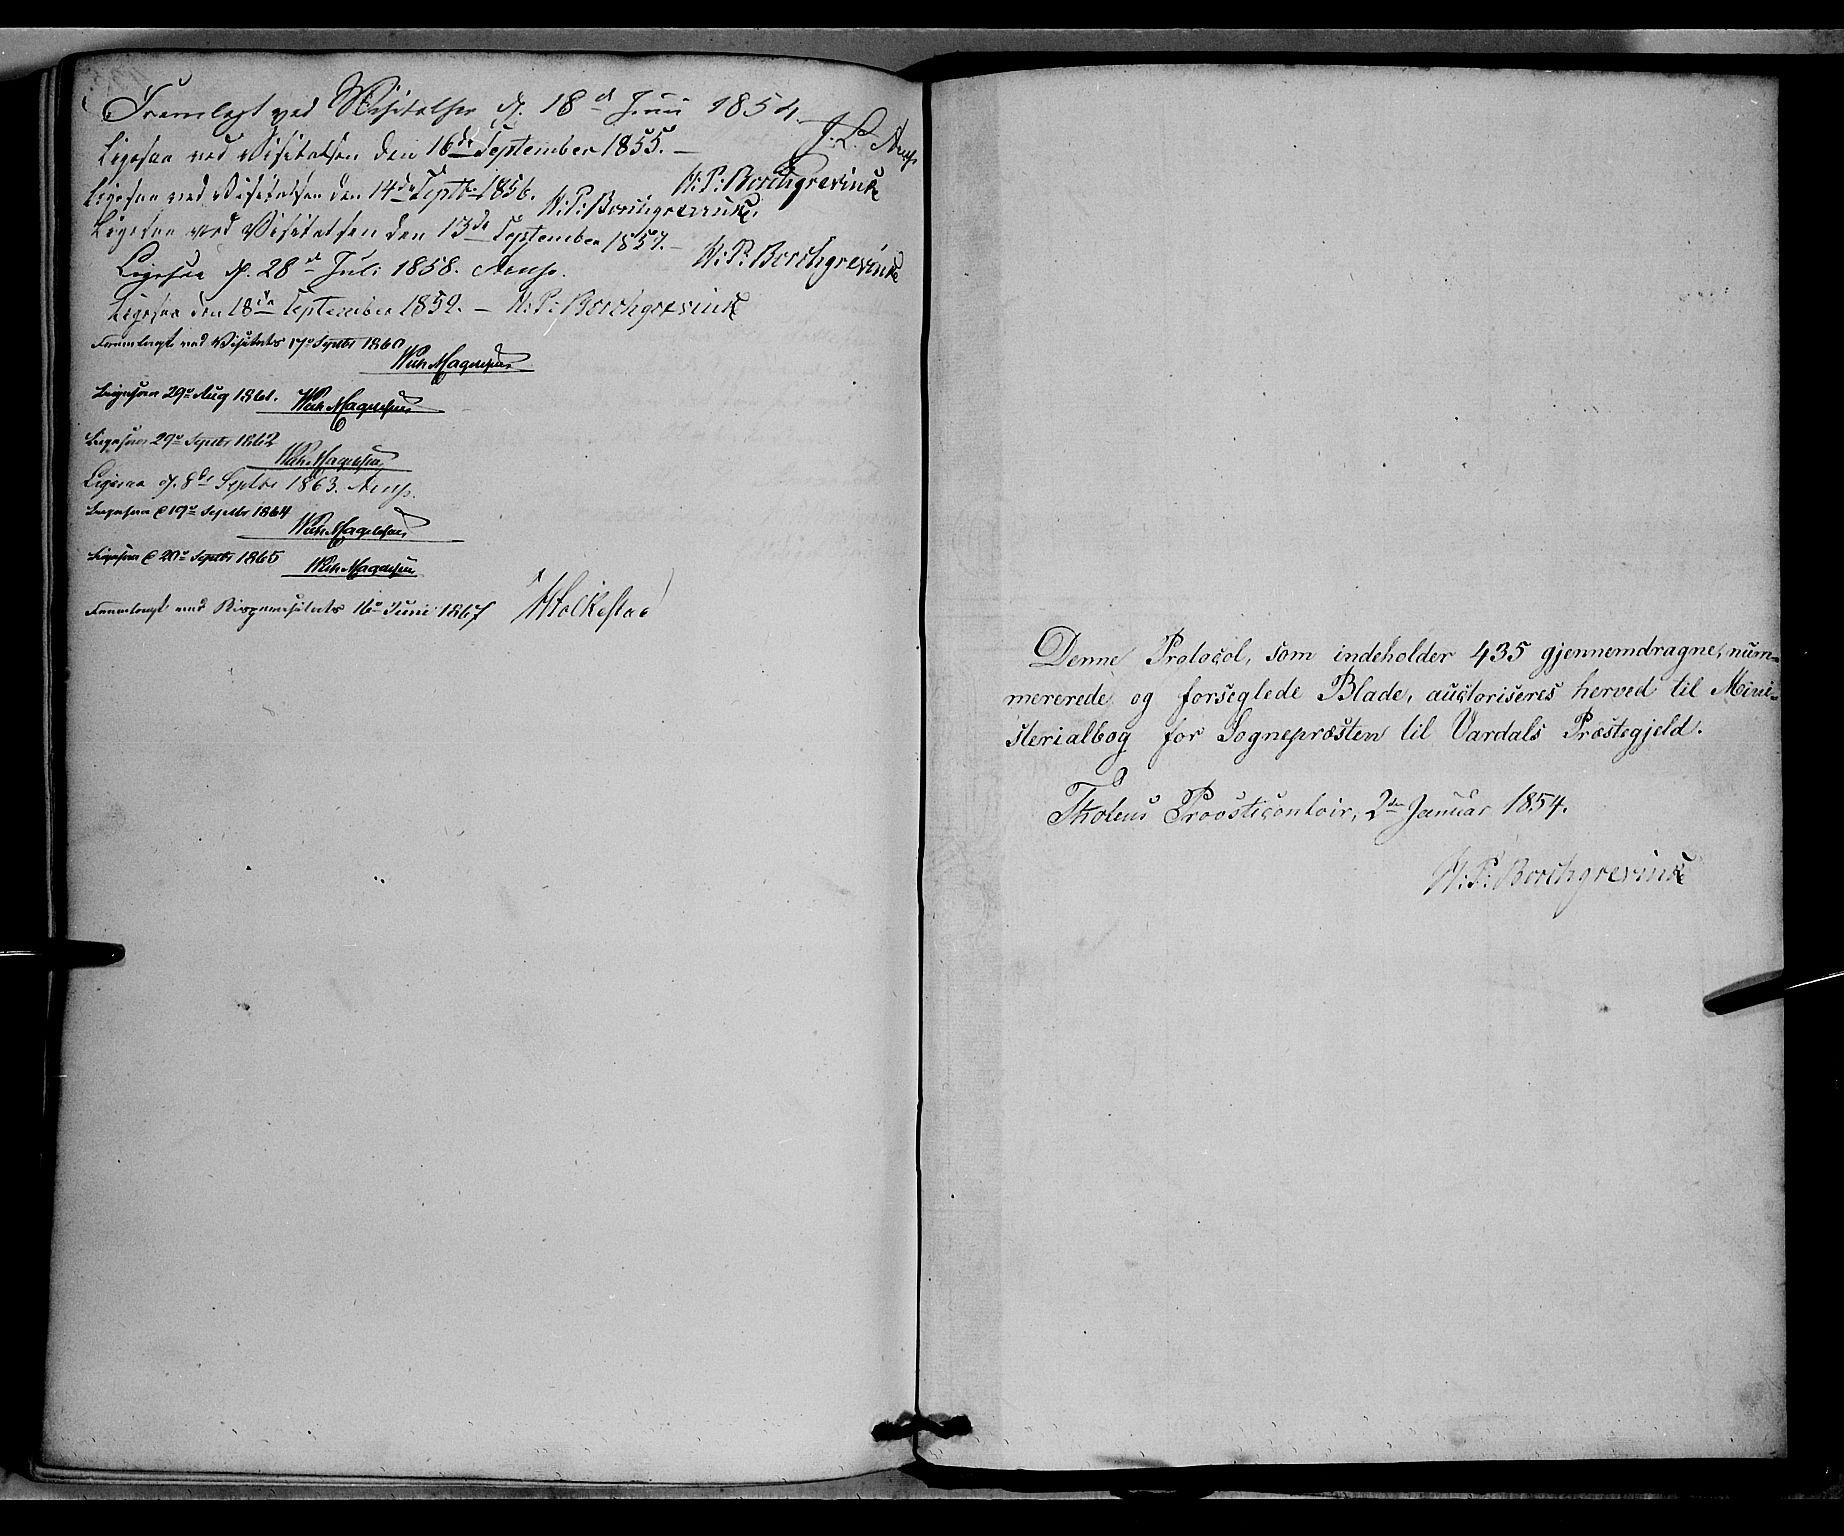 Fremlagt ved Visitatsen d. 18d Juni 1854.
J. L. Arup
Ligesaa ved Visitatsen den 16de September 1855. —
H: P: Borchgrevink
Ligesaa ved Visitatsen den 14de Septbr 1856. H: P: Borchgrevink.
Ligesaa ved Visitatsen den 13de September 1857. —
H: P: Borchgrevink
Ligesaa d. 28d Juli 1858. Arup.
Ligesaa den 18de September 1859. — H: P: Borchgrevink
Fremlagt ved Visitats 17de Septbr 1860
Wilh. Magelssen
Ligesaa 29de Aug 1861. Wilh. Magelssen
Ligesaa 29de Septbr 1862
Wilh. Magelssen
Ligesaa d. 8de Septbr 1863. Arup.
Ligesaa d 19de Septbr 1864
Wilh. Magelssen
Ligesaa d 20de Septbr 1865 Wilh. Magelssen
Fremlagt ved Bispevisitats 16de Juni 1867 Folkestad
Denne Protocol, som indeholder 435 gjennemdragne, num-
mererede og forseglede Blade, auctoriseres herved til Mini-
sterialbog for Sognepræsten til Vardals Præstegjeld.
Thotens Provsticontoir, 2den Januar 1854.
H: P: Borchgrevink